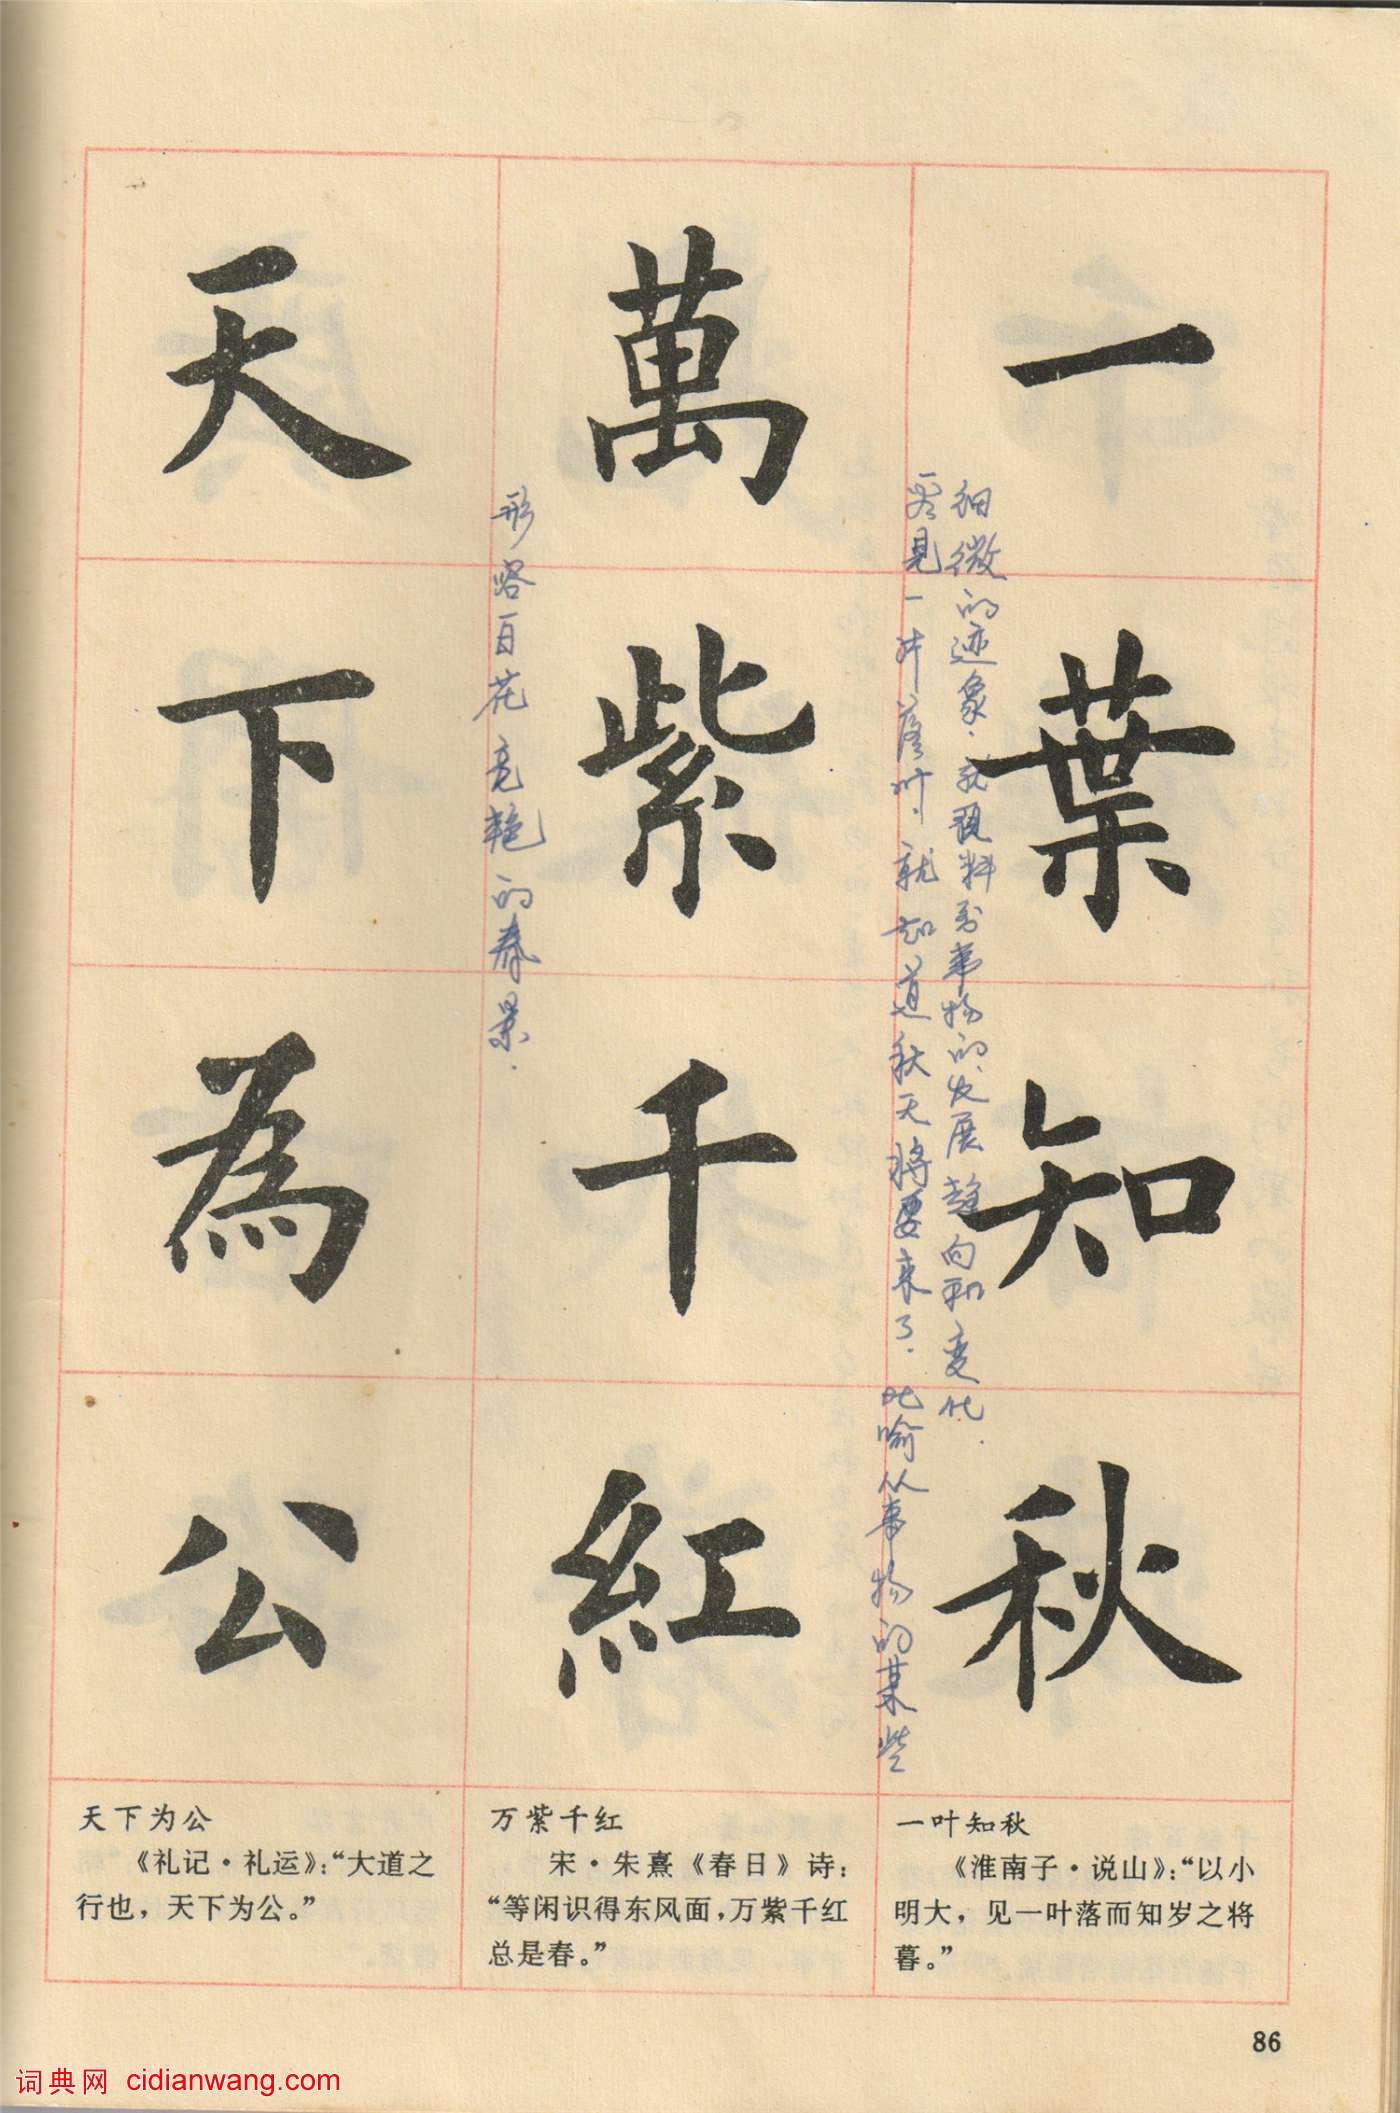 一葉知秋
萬紫千紅
天下為公
看见一片落叶，就知道秋天将要来了．比喻从事物的某些
细微的迹象．就预料到事物的发展趋向和变化．
形容百花竞艳的春景．
一叶知秋
《淮南子·说山》：“以小
明大，见一叶落而知岁之将
暮。”
万紫千红
宋·朱熹《春日》诗：
“等闲识得东风面，万紫千红
总是春。”
天下为公
《礼记·礼运》：“大道之
行也，天下为公。”
86
词典网 cidianwang.com